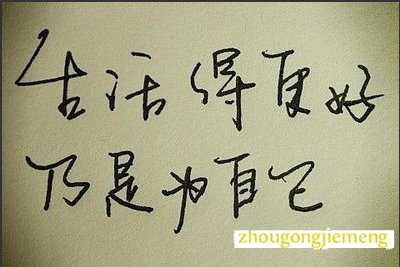 生活得更好
乃是为自己
zhougongjiemeng